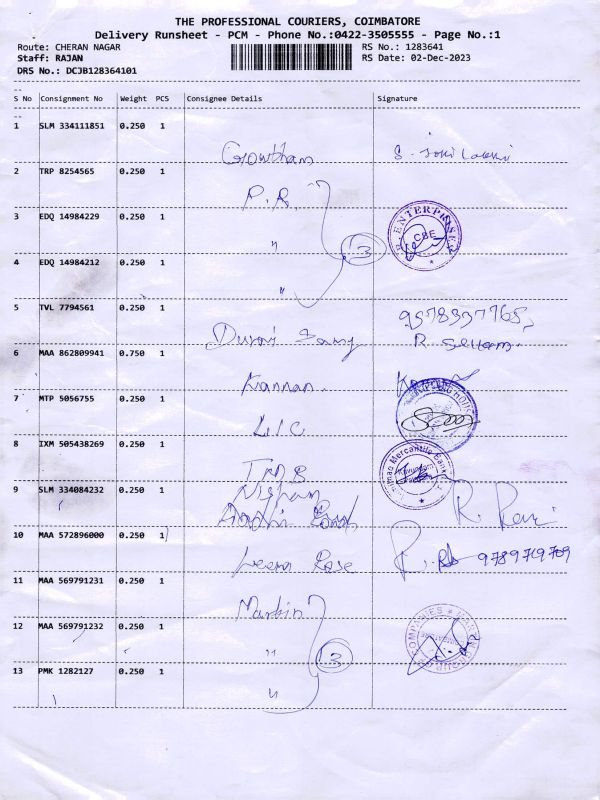 THE PROFESSIONAL COURIERS, COIMBATORE
Delivery Runsheet - PCM - Phone No.:0422-3505555 - Page No.:1
Route: CHERAN NAGAR RS No.: 1283641
Staff: RAJAN RS Date: 02-Dec-2023
DRS No.: DCJB128364101
S No Consignment No Weight PCS Consignee Details Signature
1 SLM 334111851 0.250 1
Gowtham
2 TRP 8254565 0.250 1
P.R.
3 EDQ 14984229 0.250 1
ENTERPRISES
CBE
" 3
4 EDQ 14984212 0.250 1
"
5 TVL 7794561 0.250 1
9578337765
Durai Samy R Sellam
6 MAA 862809941 0.750 1
Kannan
7 MTP 5056755 0.250 1
LIC
8 IXM 505438269 0.250 1
Mercantile Bank
TMB
9 SLM 334084232 0.250 1
Nisham
R. Ravi
10 MAA 572896000 0.250 1
Leema Rose 9789719709
11 MAA 569791231 0.250 1
Martin
12 MAA 569791232 0.250 1
COMPANIES
" 3
13 PMK 1282127 0.250 1
"